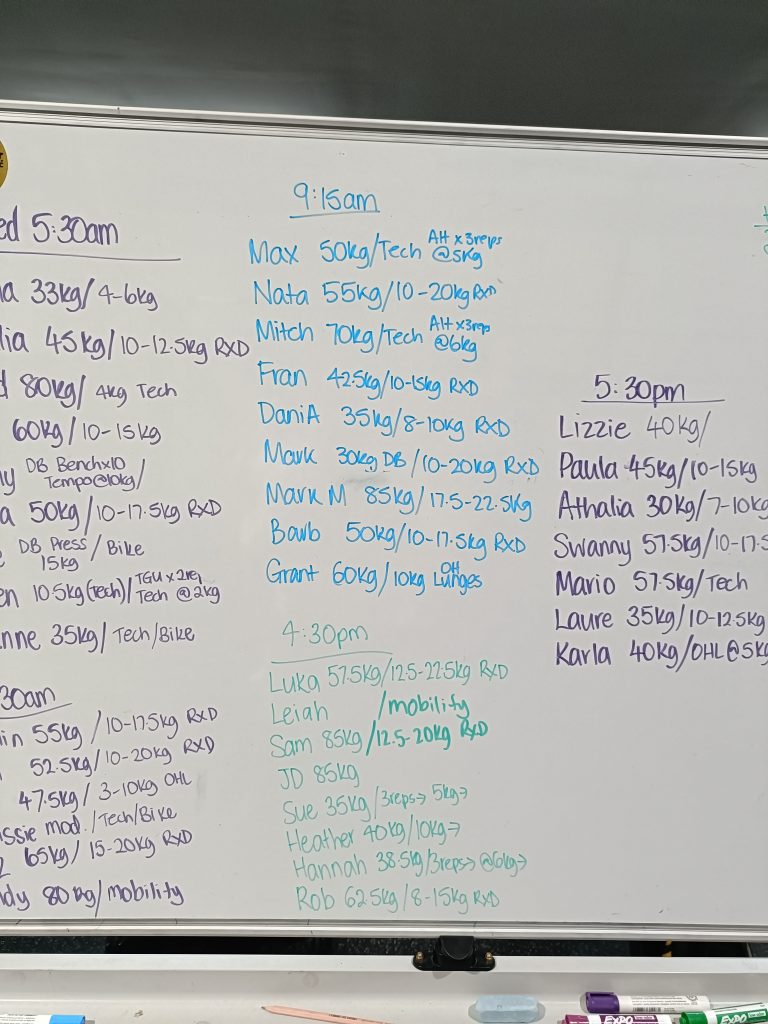 ed 5:30am
a 33kg/4-6kg
lia 45kg/10-12.5kg RXD
d 80kg/4kg Tech
60kg/10-15kg
y DB Benchx10
Tempo@10kg/
a 50kg/10-17.5kg RXD
e DB Press/Bike
15kg
en 10.5kg(tech)/TGU x 2rep
Tech @2kg
nne 35kg/Tech/Bike
30am
in 55kg/10-17.5kg RXD
52.5kg/10-20kg RXD
47.5kg/3-10kg OHL
ssie mod./Tech/Bike
65kg/15-20kg RXD
dy 80kg/mobility
9:15am
Max 50kg/Tech Alt x 3reps
@5kg
Nata 55kg/10-20kg RXD
Mitch 70kg/Tech Alt x3rep
@6kg
Fran 42.5kg/10-15kg RXD
DaniA 35kg/8-10kg RXD
Mark 30kg DB/10-20kg RXD
Mark M 85kg/17.5-22.5kg
Barb 50kg/10-17.5kg RXD
Grant 60kg/10kg OH
Lunges
4:30pm
Luka 57.5kg/12.5-22.5kg RXD
Leiah /mobility
Sam 85kg/12.5-20kg RXD
JD 85kg
Sue 35kg/3reps→ 5kg→
Heather 40kg/10kg→
Hannah 38.5kg/3reps→@6kg→
Rob 62.5kg/8-15kg RXD
5:30pm
Lizzie 40kg/
Paula 45kg/10-15kg
Athalia 30kg/7-10kg
Swanny 57.5kg/10-17.5
Mario 57.5kg/Tech
Laure 35kg/10-12.5kg
Karla 40kg/OHL@5kg
EXPO
EXPO